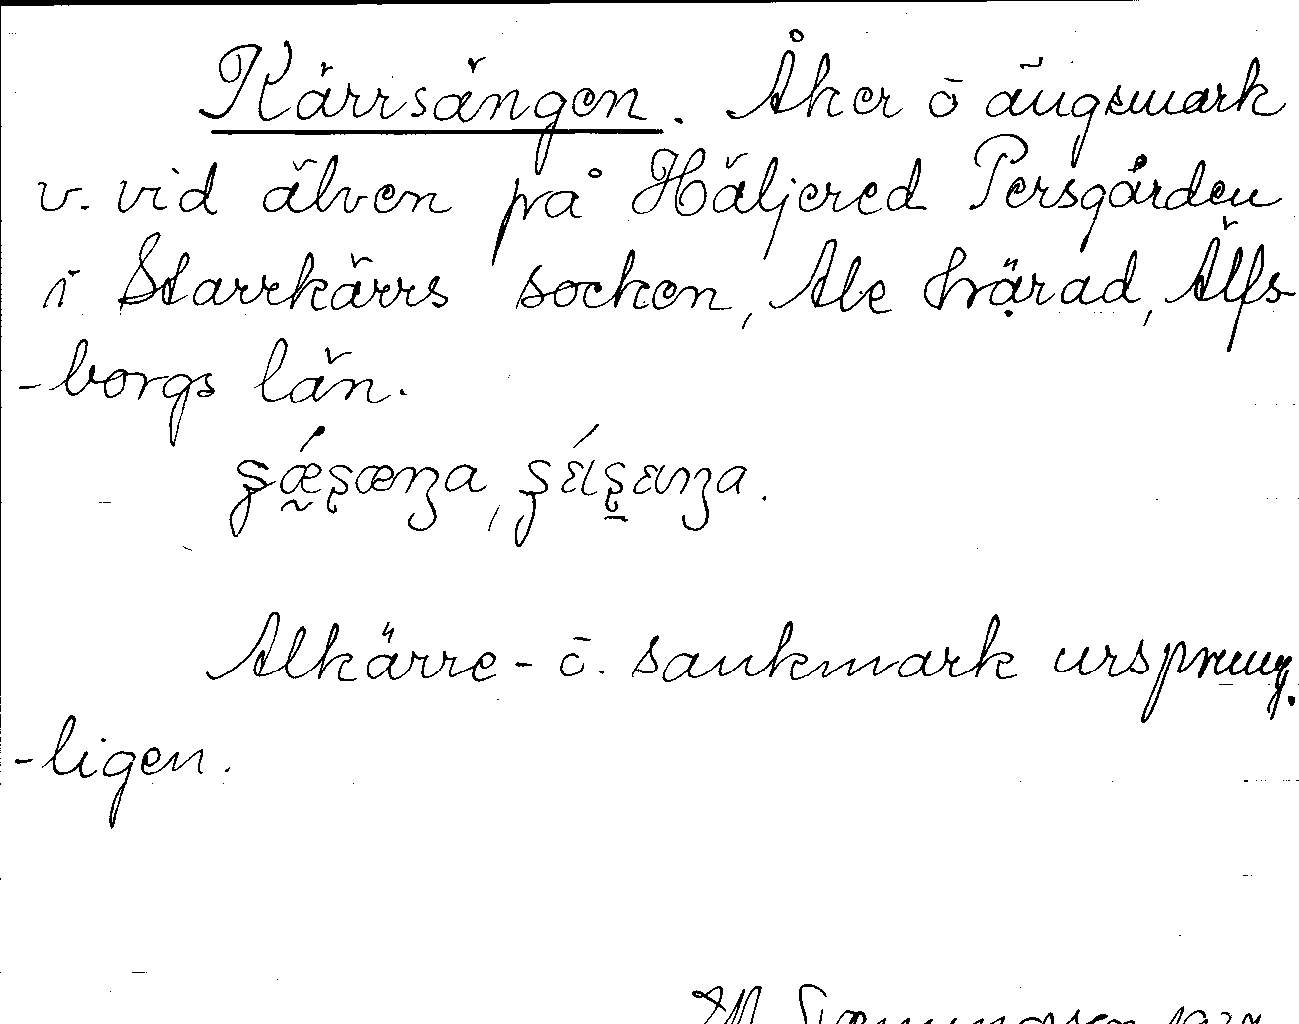 Kärrsängen. Åker ō ängsmark
v. vid älven på Häljered Persgården
i Starrkärrs socken, Ale härad, Älfs-
-borgs län.
Alkärre- ō. sankmark ursprung
-ligen.